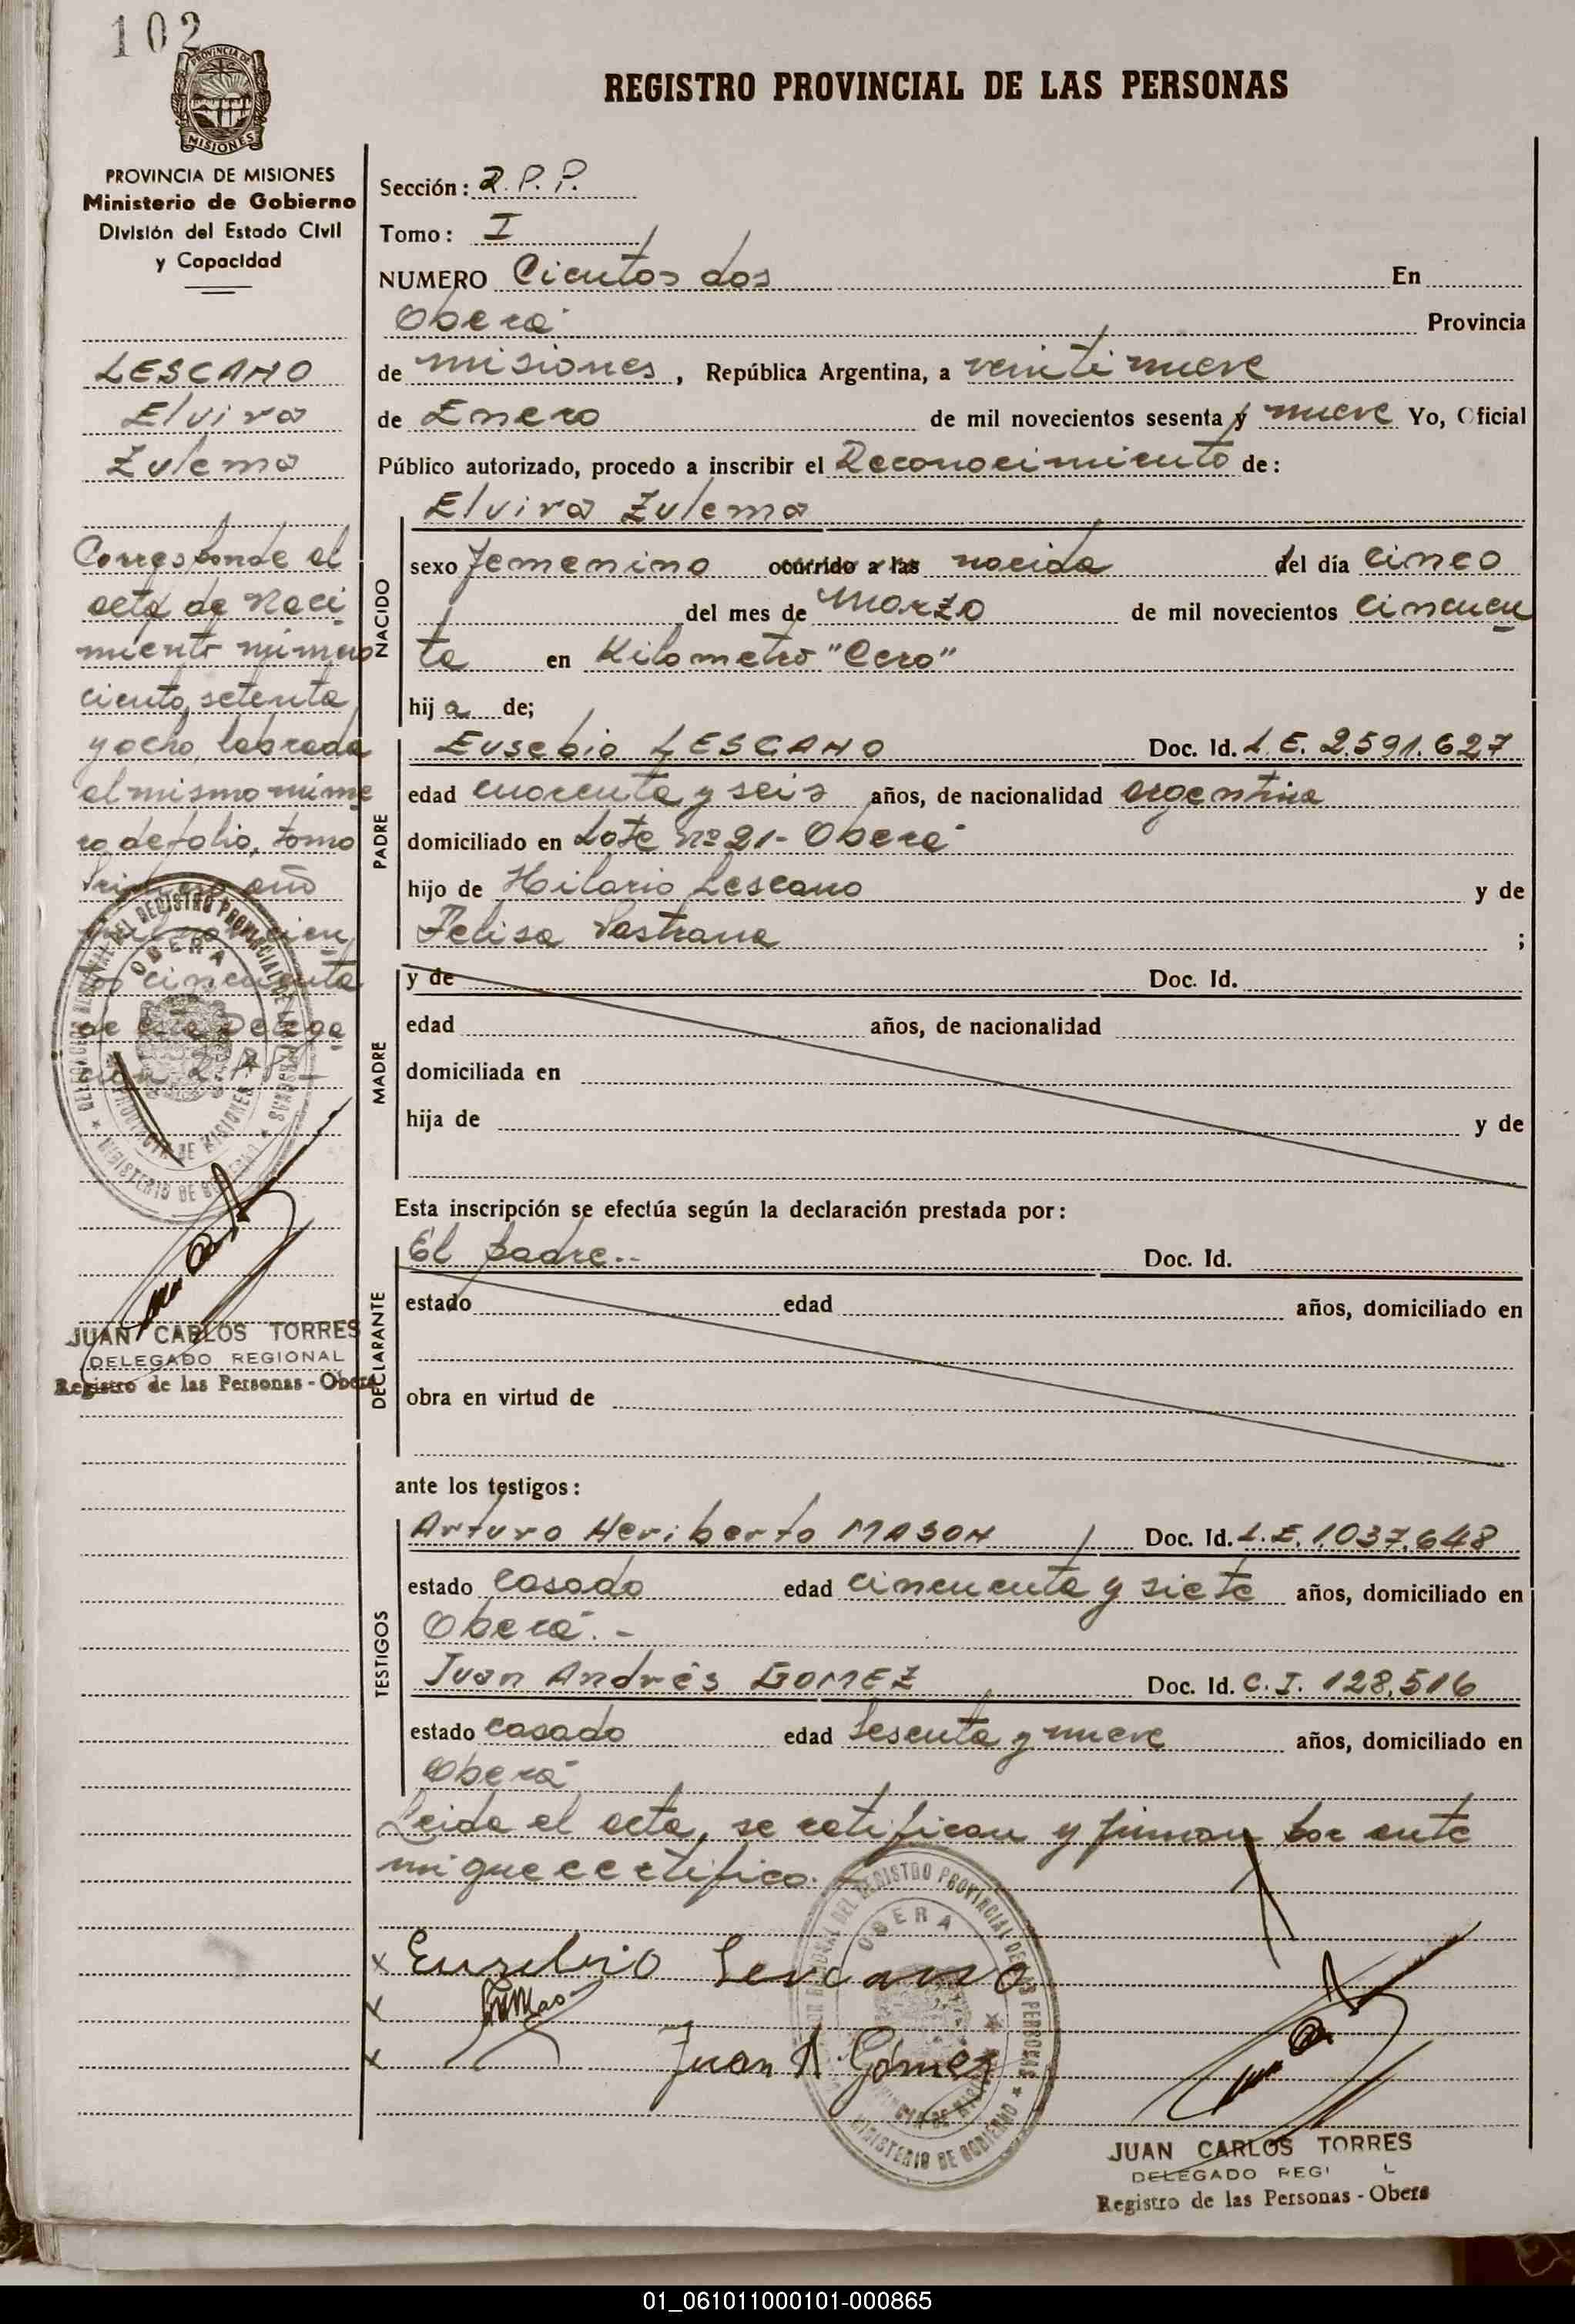 102
PROVINCIA DE
MISIONES
REGISTRO PROVINCIAL DE LAS PERSONAS
PROVINCIA DE MISIONES
Ministerio de Gobierno
División del Estado Civil
y Capacidad
LESCANO
Elvira
Zulema
Corresponde al
acta de Naci
miento número
ciento setenta
y ocho, labrada
al mismo núme
ro de folio, tomo
Primero año
mil novecien
tos cincuenta
de esta Delega
ción R.P.P.
DELEGACION REGIONAL DEL REGISTRO PROVINCIAL DE LAS PERSONAS
OBERA
PROVINCIA DE MISIONES
MINISTERIO DE GOBIERNO
JUAN CARLOS TORRES
DELEGADO REGIONAL
Registro de las Personas - Obera
Sección: R.P.P.
Tomo: I
NUMERO Cientos dos En
Oberá Provincia
de Misiones, República Argentina, a veintinueve
de Enero de mil novecientos sesenta y nueve Yo, Oficial
Público autorizado, procedo a inscribir el Reconocimiento de:
Elvira Zulema
NACIDO
sexo femenino ocurrido a las nacida del día cinco
del mes de Marzo de mil novecientos cincuen
ta en Kilometro "Cero"
hija de;
PADRE
Eusebio LESCANO Doc. Id. L.E. 2.591.627
edad cuarenta y seis años, de nacionalidad argentina
domiciliado en Lote nº 21- Oberá
hijo de Hilario Lescano y de
Felisa Pastrana ;
MADRE
y de Doc. Id.
edad años, de nacionalidad
domiciliada en
hija de y de
Esta inscripción se efectúa según la declaración prestada por:
DECLARANTE
El padre.- Doc. Id.
estado edad años, domiciliado en
obra en virtud de
ante los testigos:
TESTIGOS
Arturo Heriberto MASON Doc. Id. L.E. 1.037.648
estado casado edad cincuenta y siete años, domiciliado en
Oberá.-
Juan Andrés GOMEZ Doc. Id. C.I. 128.516
estado casado edad Sesenta y nueve años, domiciliado en
Oberá
Leida el acta, se ratifican y firman por ante
mi que certifico.-
x Eusebio Lescano
x
x Juan A. Gómez
DELEGACION REGIONAL DEL REGISTRO PROVINCIAL DE LAS PERSONAS
OBERA
PROVINCIA DE MISIONES
MINISTERIO DE GOBIERNO
JUAN CARLOS TORRES
DELEGADO REGI L
Registro de las Personas - Obera
01_061011000101-000865